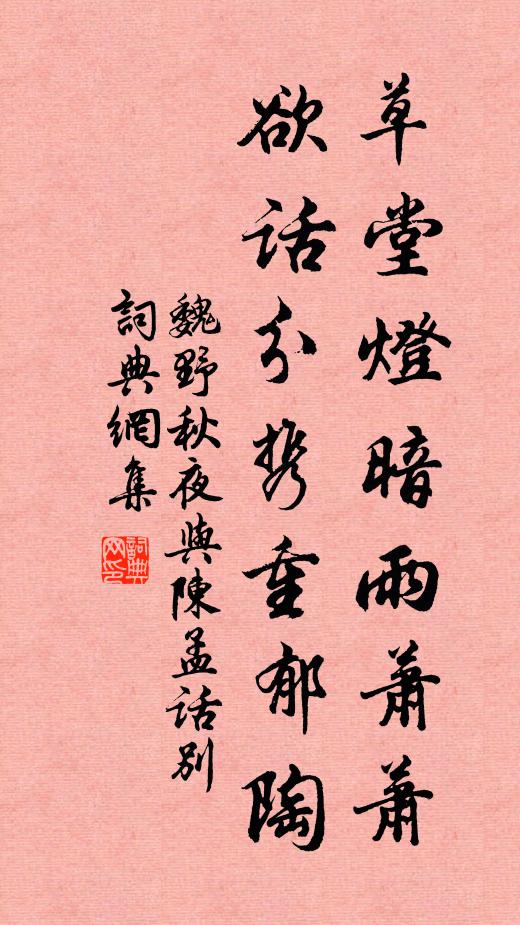 草堂燈暗雨蕭蕭
欲话分携重郁陶
魏野秋夜與陳孟话别
詞典網集
詞典网印